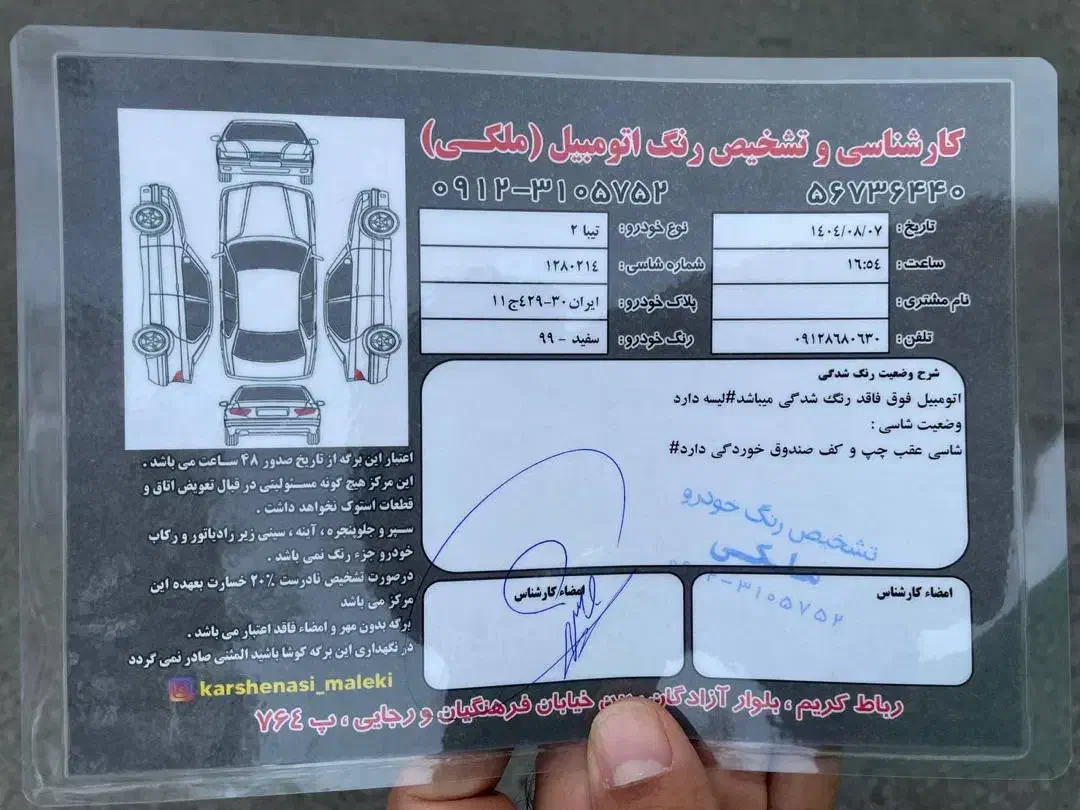 کارشناسی و تشخیص رنگ اتومبیل (ملکی)
۵۶۷۳۶۴۴۰ ۰۹۱۲-۳۱۰۵۷۵۲
تاریخ: ۱۴۰۴/۰۸/۰۷ نوع خودرو: تیبا ۲
ساعت: ۱۶:۵٤ شماره شاسی: ۱۲۸۰۲۱٤
نام مشتری: پلاک خودرو: ایران۳۰-٤۲۹ج۱۱
تلفن: ۰۹۱۲۸۶۸۰۶۳۰ رنگ خودرو: سفید - ۹۹
شرح وضعیت رنگ شدگی
اتومبیل فوق فاقد رنگ شدگی میباشد#لیسه دارد
وضعیت شاسی :
شاسی عقب چپ و کف صندوق خوردگی دارد#
تشخیص رنگ خودرو
ملکی
۳۱۰۵۷۵۲
امضاء کارشناس
امضاء کارشناس
اعتبار این برگه از تاریخ صدور ۴۸ ساعت می باشد .
این مرکز هیچ گونه مسئولیتی در قبال تعویض اتاق و
قطعات استوک نخواهد داشت .
سپر و جلوپنجره ، آینه ، سینی زیر رادیاتور و رکاب
خودرو جزء رنگ نمی باشد .
درصورت تشخیص نادرست ۲۰٪ خسارت بعهده این
مرکز می باشد
برگه بدون مهر و امضاء فاقد اعتبار می باشد .
در نگهداری این برگه کوشا باشید المثنی صادر نمی گردد
karshenasi_maleki
رباط کریم ، بلوار آزادگان، خیابان فرهنگیان و رجایی ، پ ۷۶٤